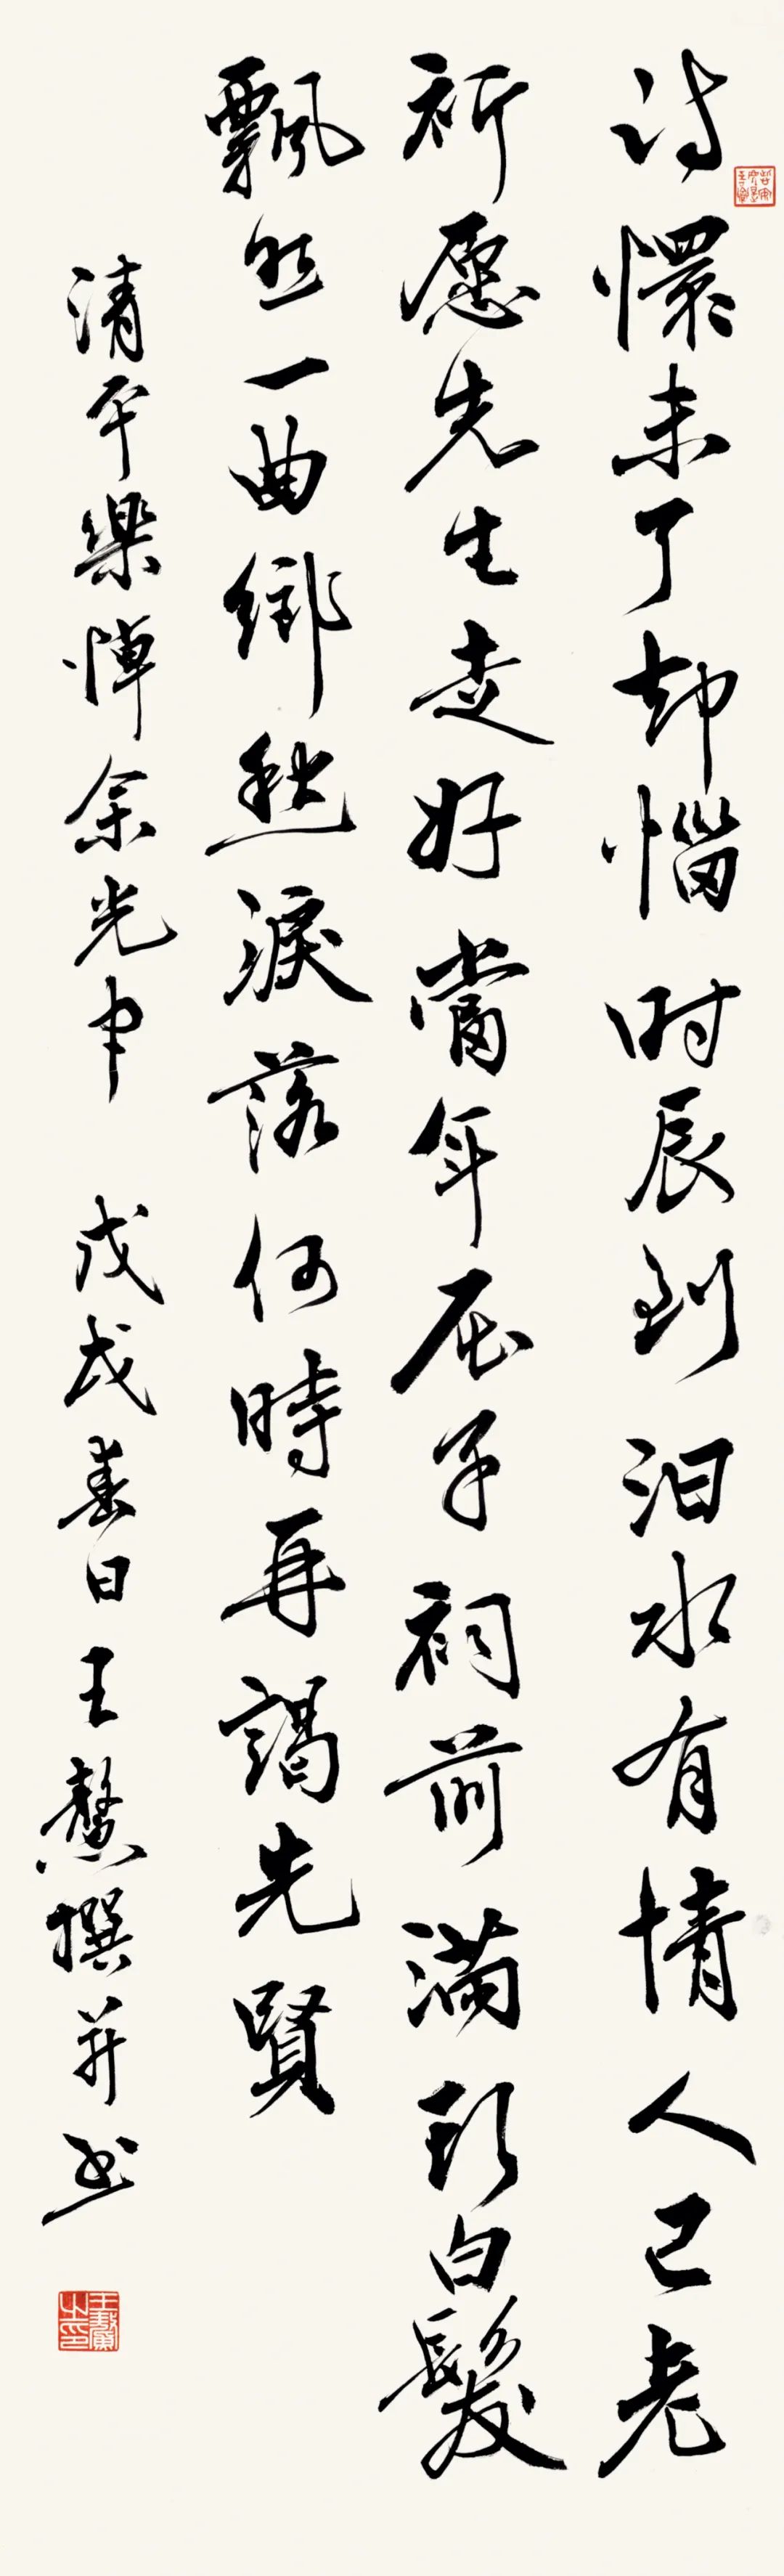 诗懷未了却惱时辰到汨水有情人已老
祈愿先生走好當年屈子祠前满頭白髮
飄然一曲鄉愁淚落何時再謁先賢
清平樂悼余光中 戊戌春日王撰并书